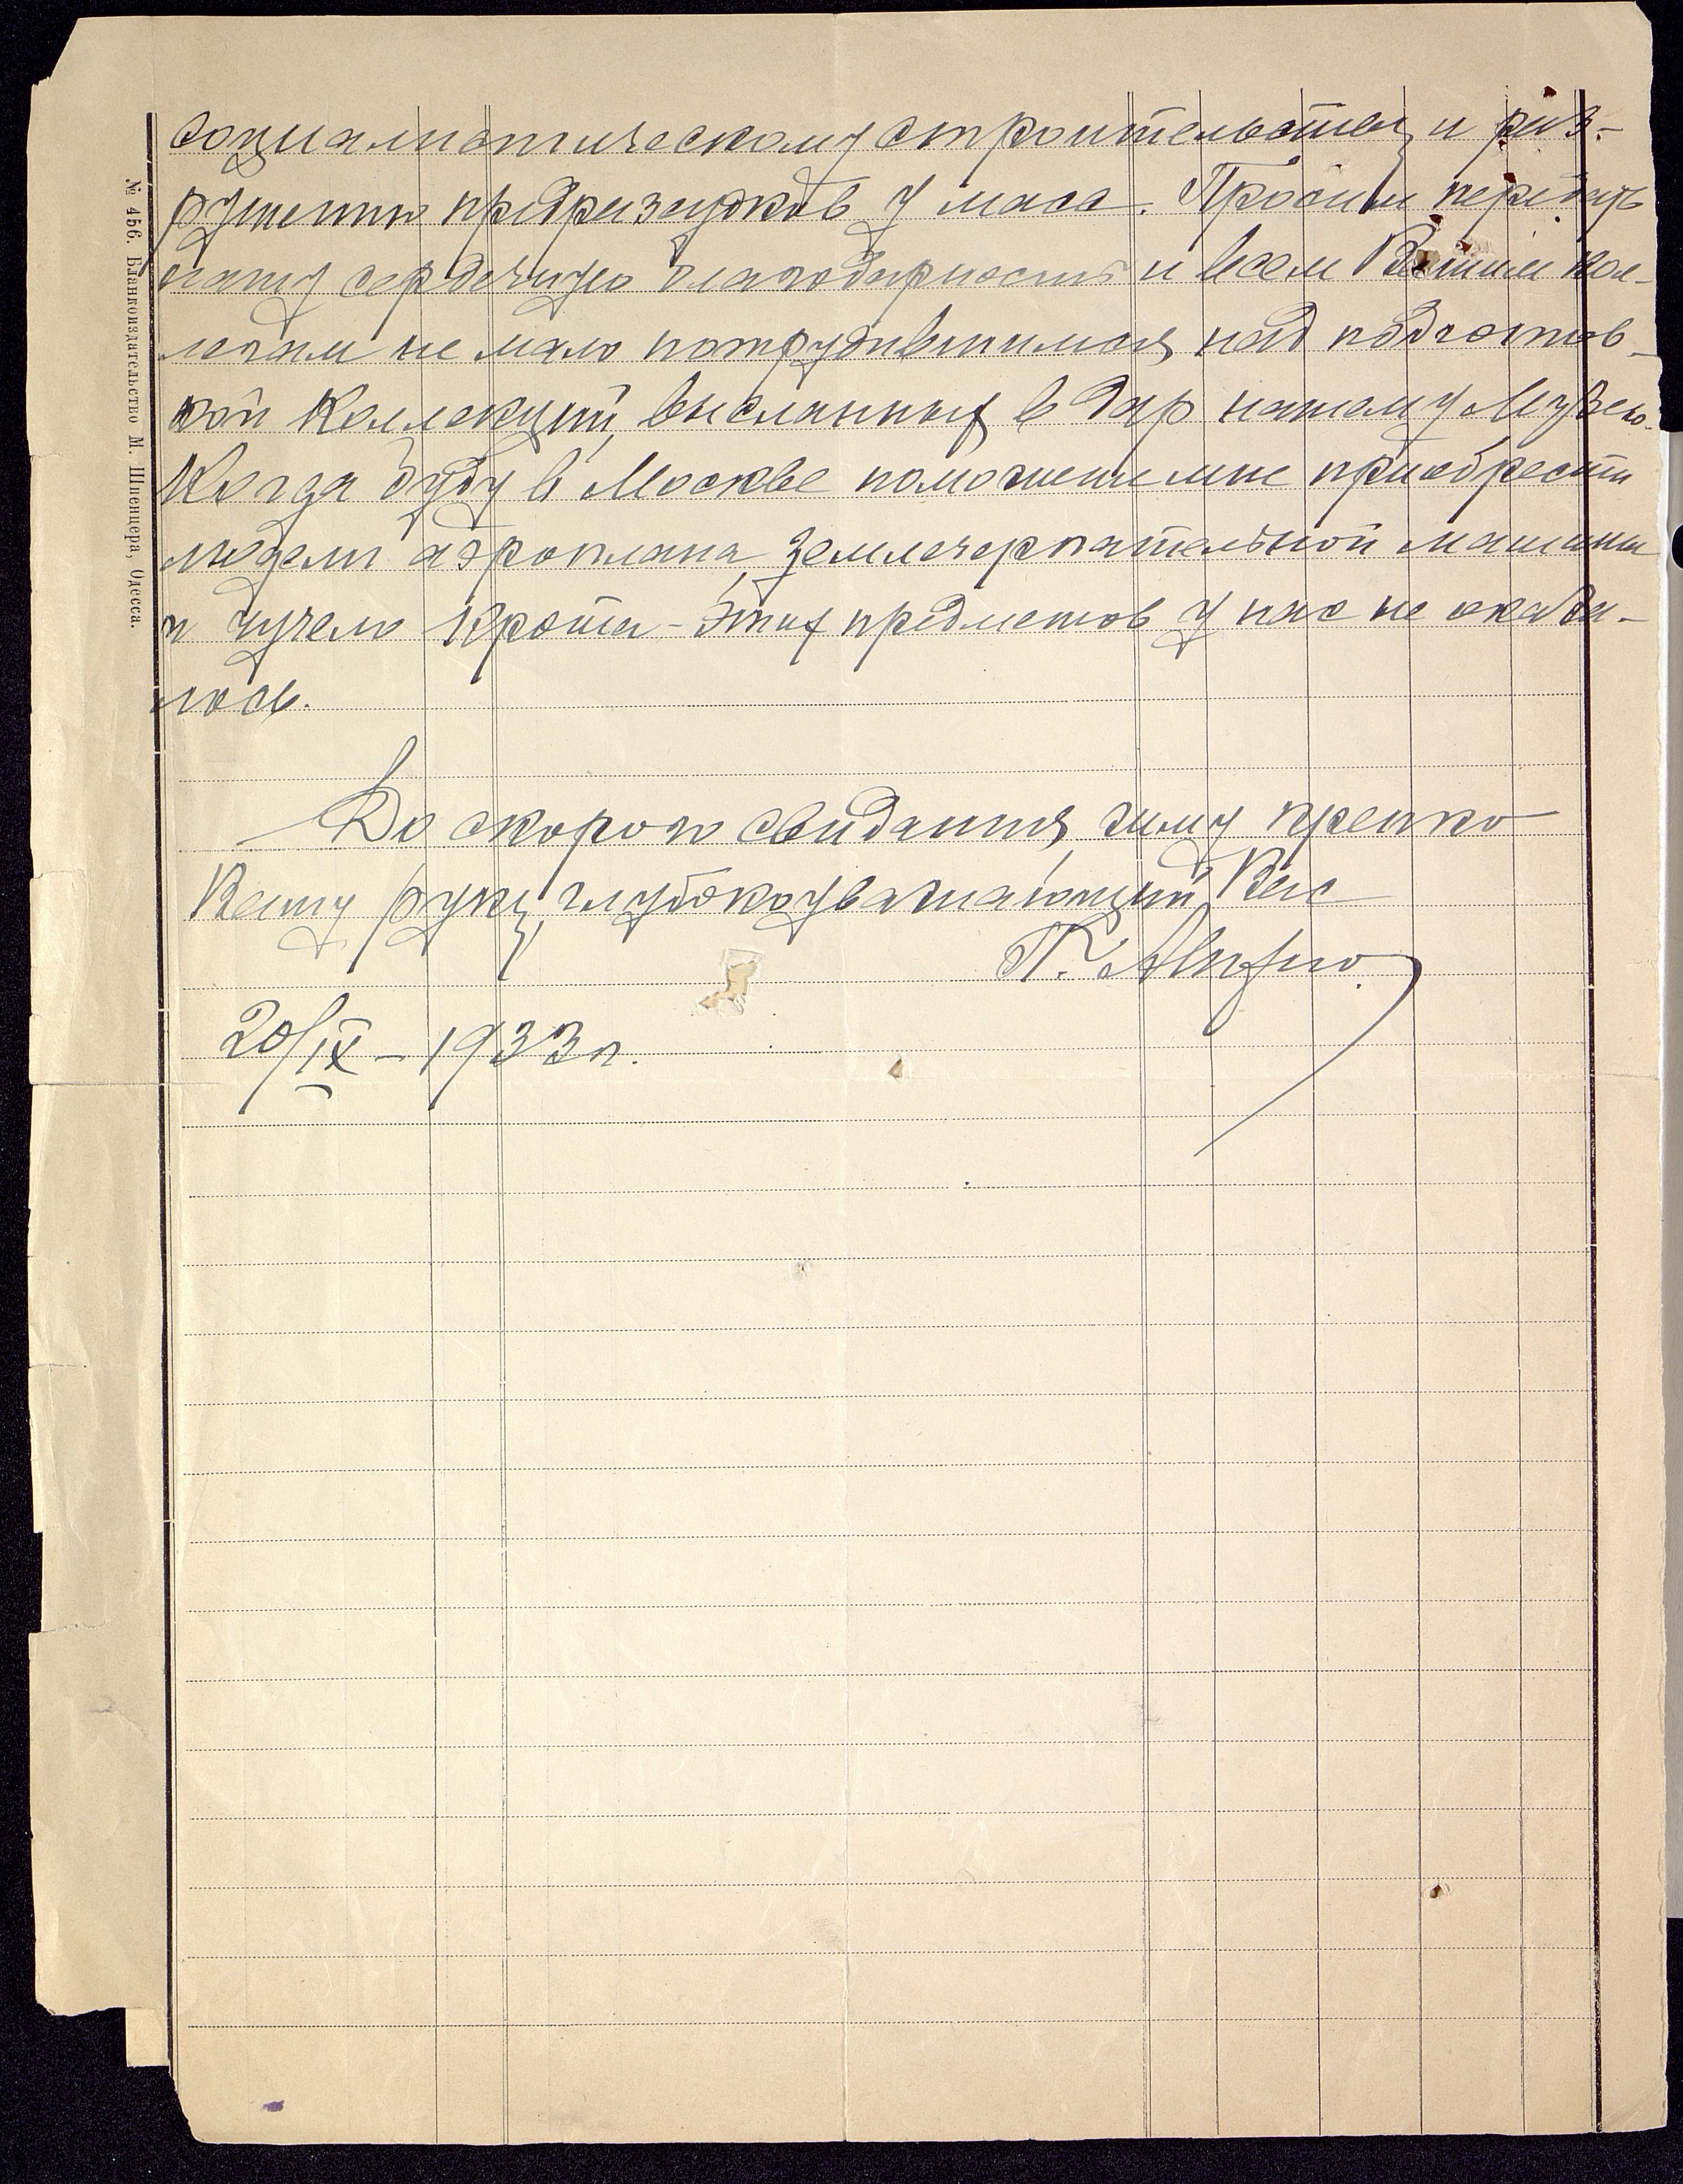 социалистическому строительству и раз-
рушению предрассудков у масс. Просим передать
нашу сердечную благодарность и всем Вашим кол-
легам не мало потрудившимся над подготов-
кой коллекций, высланных в дар нашему Музею.
Когда буду в Москве поможете мне приобрести
модели аэроплана, землечерпательной машины
и чучело крота - этих предметов у нас не оказа-
лось.
До скорого свидания, жму крепко
Вашу руку, глубокоуважающий Вас
П.
20/IX - 1933 г.
№ 456. Бланкоиздательство М. Шпенцера, Одесса.